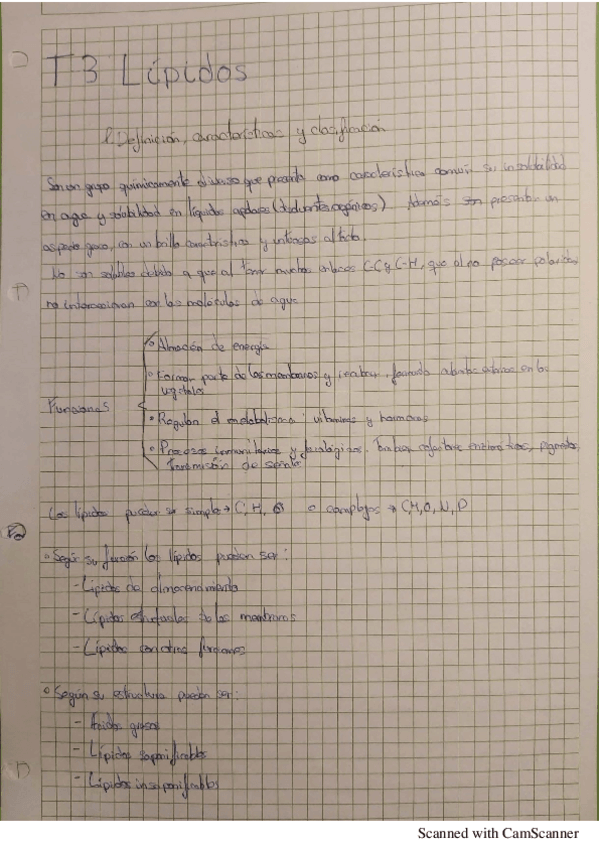 T3 Lípidos
1. Definición, características y clasificación
Son un grupo químicamente diverso que presenta como característica común su insolubilidad
en agua y solubilidad en líquidos apolares (disolventes orgánicos). Además suelen presentar un
aspecto graso, con un brillo característico y untuosos al tacto.
No son solubles debido a que al tener muchos enlaces C-C y C-H, que al no poseer polaridad,
no interaccionan con las moléculas de agua
Funciones
• Almacén de energía
• Formar parte de las membranas y formando cubiertas en los
vegetales
• Regulan el metabolismo: vitaminas y hormonas
• Procesos inmunitarios y fisiológicos. enzimáticos, pigmentos,
transmisión de señales
Los lípidos pueden ser simples → C, H, O o complejos → C,H,O,N,P
• Según su función los lípidos pueden ser:
- Lípidos de almacenamiento
- Lípidos estructurales de las membranas
- Lípidos con otras funciones
• Según su estructura pueden ser:
- Ácidos grasos
- Lípidos saponificables
- Lípidos insaponificables
Scanned with CamScanner